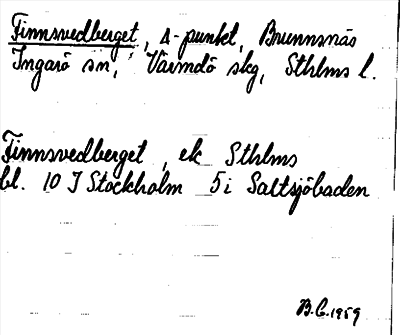 Finnsvedberget, Δ-punkt, Brunnsnäs
Ingarö sn, Värmdö skg, Sthlms l.
Finnsvedberget, ek Sthlms
bl. 10 I Stockholm 5i Saltsjöbaden
B.C. 1959